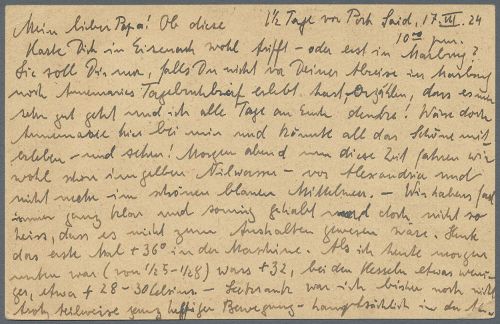 Mein lieber Papa! Ob diese 1 1/2 Tage vor Port Said, 17. VII. 24
10 p.m.
Karte Dich in Eisenach wohl trifft - oder erst in Marburg?
Sie soll Dir nur, falls Du nicht vor Deiner Abreise in Marburg
noch Annemaries Tagebuchbrief erlebt hast, erzählen, dass es mir
sehr gut geht und ich alle Tage an Euch denke! Wäre doch
Annemarie hier bei mir und könnte all das Schöne mit
erleben - und sehen! Morgen abend um diese Zeit fahren wir
wohl schon im gelben Nilwasser - vor Alexandria und
nicht mehr im schönen blauen Mittelmeer. - Wir haben's fast
immer ganz klar und sonnig gehabt und doch nicht so
heiss, dass es nicht zum Aushalten gewesen wäre. Heute
das erste Mal +36° in der Maschine. Als ich heute morgen
unten war (von 1/2 5 - 1/2 8) wars +32, bei den Kesseln etwas weni-
ger, etwa + 28 - 30 Celsius. - Seekrank war ich bisher noch nicht
trotz teilweise ganz heftiger Bewegung - hauptsächlich in der